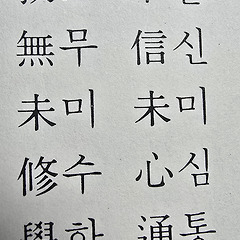 無무 信신
未미 未미
修수 心심
學학 通통